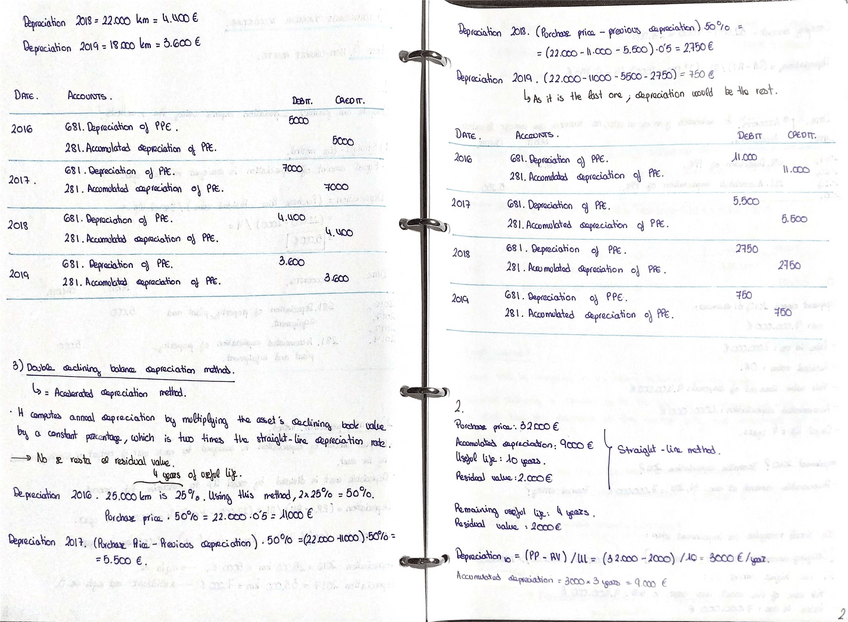 Depreciation 2018 = 22.000 km = 4.400 €
Depreciation 2019 = 18.000 km = 3.600 €
DATE. ACCOUNTS. DEBIT. CREDIT.
2016 681. Depreciation of PPE. 5000
281. Accumulated depreciation of PPE. 5000
2017. 681. Depreciation of PPE. 7000
281. Accumulated depreciation of PPE. 7000
2018 681. Depreciation of PPE. 4.400
281. Accumulated depreciation of PPE. 4.400
2019 681. Depreciation of PPE. 3.600
281. Accumulated depreciation of PPE. 3.600
3) Double declining balance depreciation methods.
↳ = Accelerated depreciation method.
· It computes annual depreciation by multiplying the asset's declining book value
by a constant percentage, which is two times the straight-line depreciation rate.
→ No se resta el residual value.
4 years of useful life.
Depreciation 2016. 25.000 km is 25%. Using this method, 2x25% = 50%.
Purchase price · 50% = 22.000 · 0'5 = 11000 €
Depreciation 2017. (Purchase Price - Previous depreciation) · 50% = (22.000 - 11000) · 50% =
= 5.500 €.
Depreciation 2018. (Purchase price - previous depreciation) 50% =
= (22.000 - 11.000 - 5.500) · 0'5 = 2750 €
Depreciation 2019. (22.000 - 11000 - 5500 - 2750) = 750 €
↳ As it is the last one, depreciation would be the rest.
DATE. ACCOUNTS. DEBIT CREDIT.
2016 681. Depreciation of PPE. 11.000
281. Accumulated depreciation of PPE. 11.000
2017 681. Depreciation of PPE. 5.500
281. Accumulated depreciation of PPE. 5.500
2018 681. Depreciation of PPE. 2750
281. Accumulated depreciation of PPE. 2750
2019 681. Depreciation of PPE. 750
281. Accumulated depreciation of PPE. 750
2.
Purchase price: 32000 €
Accumulated depreciation: 9000 €
Useful life: 10 years.
Residual value: 2.000 €
Straight-line method.
Remaining useful life: 4 years.
Residual value: 2000 €
Depreciation 10 = (PP - RV) / UL = (32.000 - 2000) / 10 = 3000 € / year.
Accumulated depreciation = 3000 x 3 years = 9.000 €
2